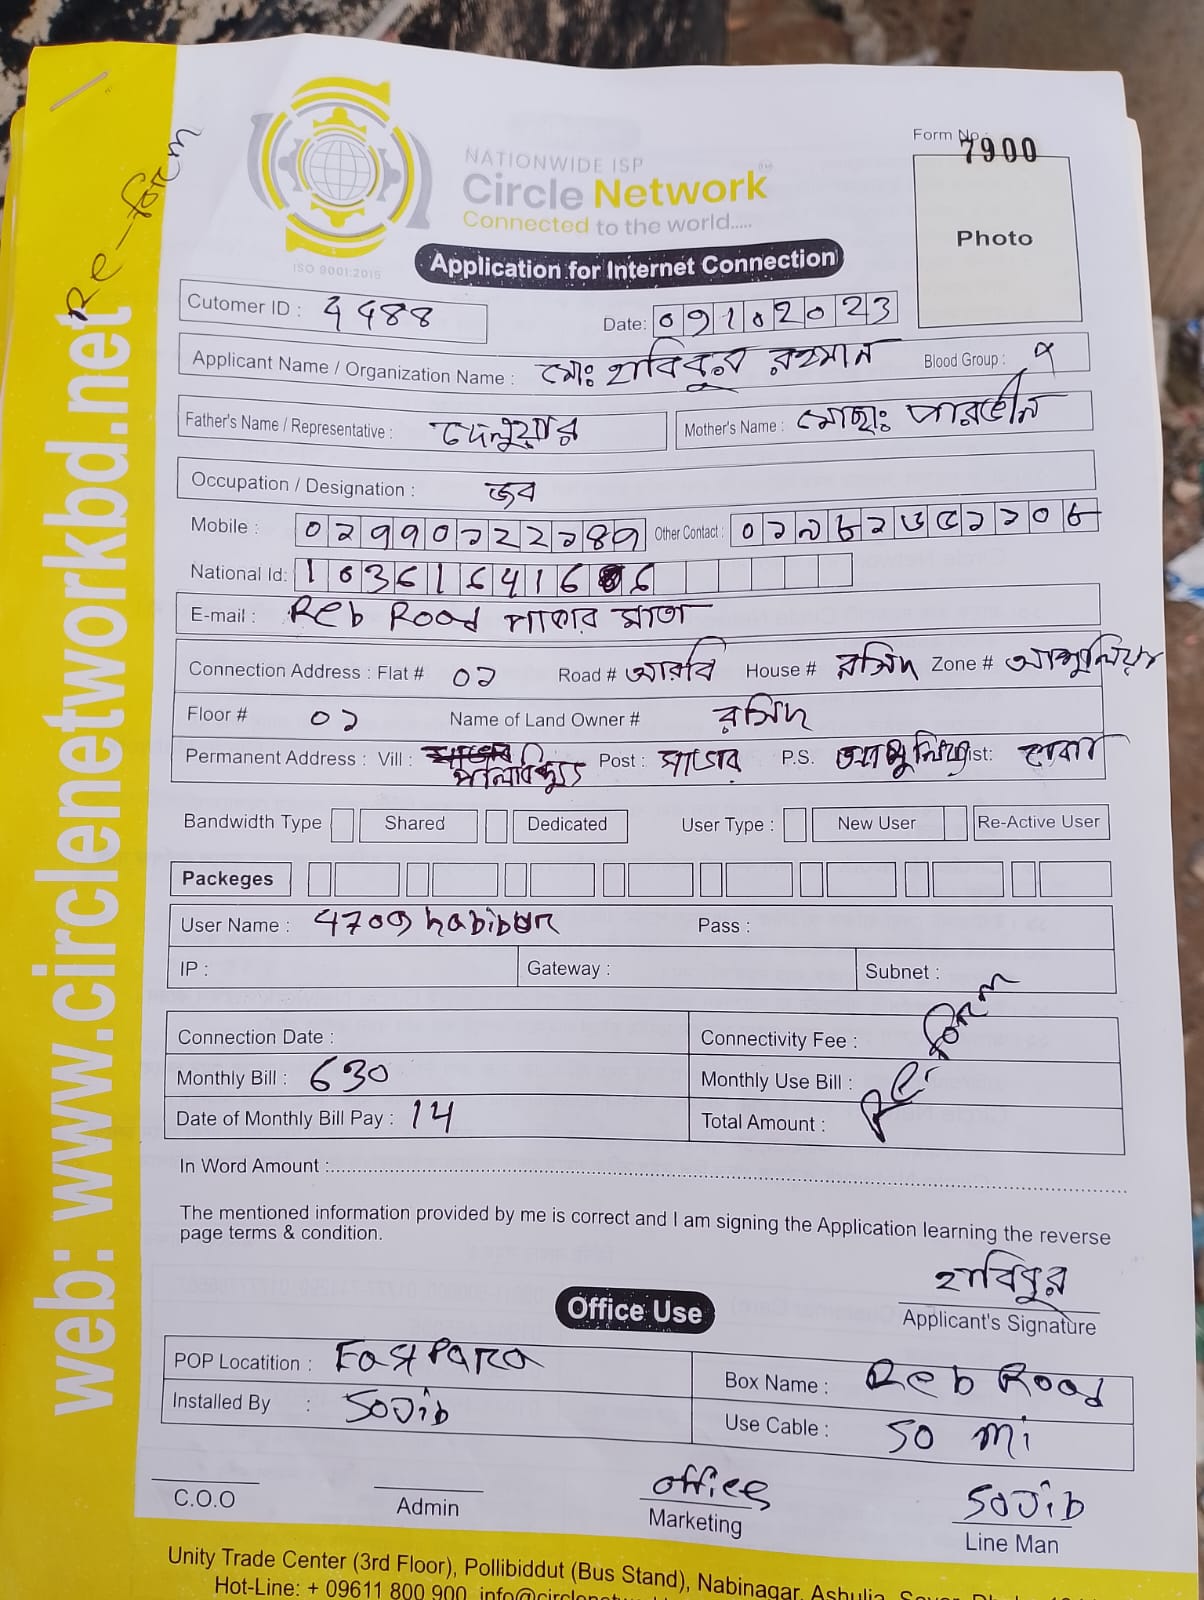 Re-form
web: www.circlenetworkbd.net
NATIONWIDE ISP
Circle Network
Connected to the world.....
ISO 9001:2015
Form No.: 7900
Photo
Application for Internet Connection
Cutomer ID : 4488
Date: 09102023
Applicant Name / Organization Name : মোঃ হাবিবুর রহমান Blood Group :
Father's Name / Representative : দেলুয়ার Mother's Name : মোছাঃ পারভীন
Occupation / Designation : জব
Mobile : Other Contact :
National Id:
E-mail : Reb Road পাকার মাথা
Connection Address : Flat # ০১ Road # আরবি House # রসিদ Zone # আশুলিয়া
Floor # ০১ Name of Land Owner # রসিদ
Permanent Address : Vill : Post : সাভার P.S. আশুলিয়া Dist: ঢাকা
Bandwidth Type Shared Dedicated User Type : New User Re-Active User
Packeges
User Name : 4709habibur Pass :
IP : Gateway : Subnet :
Connection Date : Connectivity Fee :
Monthly Bill : 630 Monthly Use Bill :
Date of Monthly Bill Pay : 14 Total Amount :
Re-form
In Word Amount :
The mentioned information provided by me is correct and I am signing the Application learning the reverse
page terms & condition.
হাবিবুর
Applicant's Signature
Office Use
POP Locatition : East Para Box Name : Reb Road
Installed By : Sojib Use Cable : 50 mi
C.O.O Admin office Marketing Sojib Line Man
Unity Trade Center (3rd Floor), Pollibiddut (Bus Stand), Nabinagar, Ashulia,
Hot-Line: + 09611 800 900,